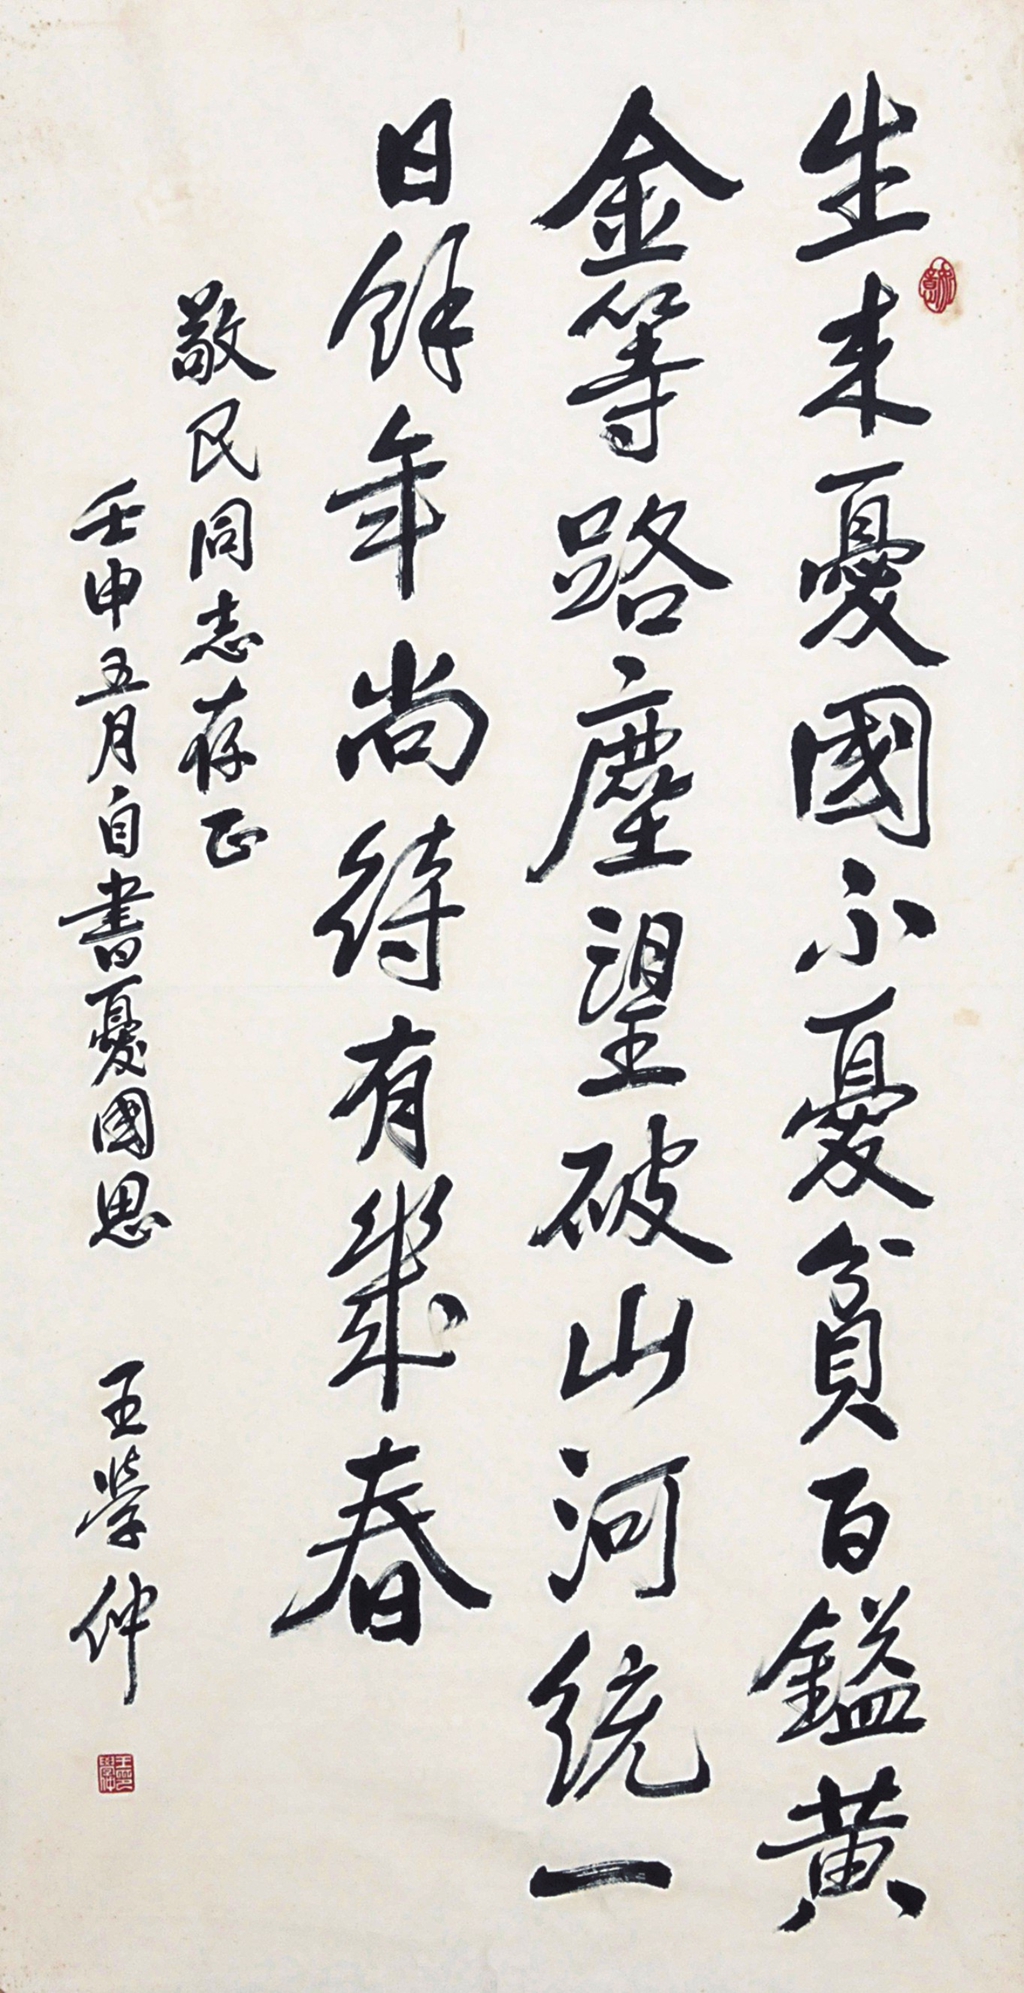 生来憂國不憂貧百鎰黄
金等路塵望破山河統一
日餘年尚待有幾春
敬民同志存正
壬申五月自書憂國思 王學仲